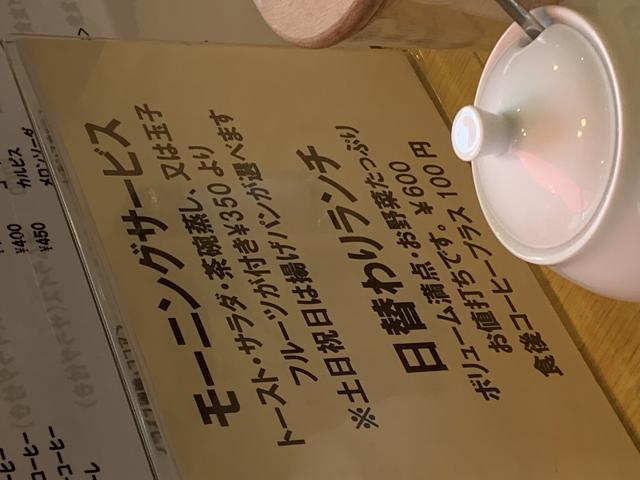 モーニングサービス
トースト・サラダ・茶碗蒸し、又は玉子
フルーツが付き¥350より
※土日祝日は揚げパンが選べます
日替わりランチ
ボリューム満点・お野菜たっぷり
お値打ちです。¥600
食後コーヒープラス100円
カルピス
メロンソーダ
¥400
¥450
コーヒー
コーヒー